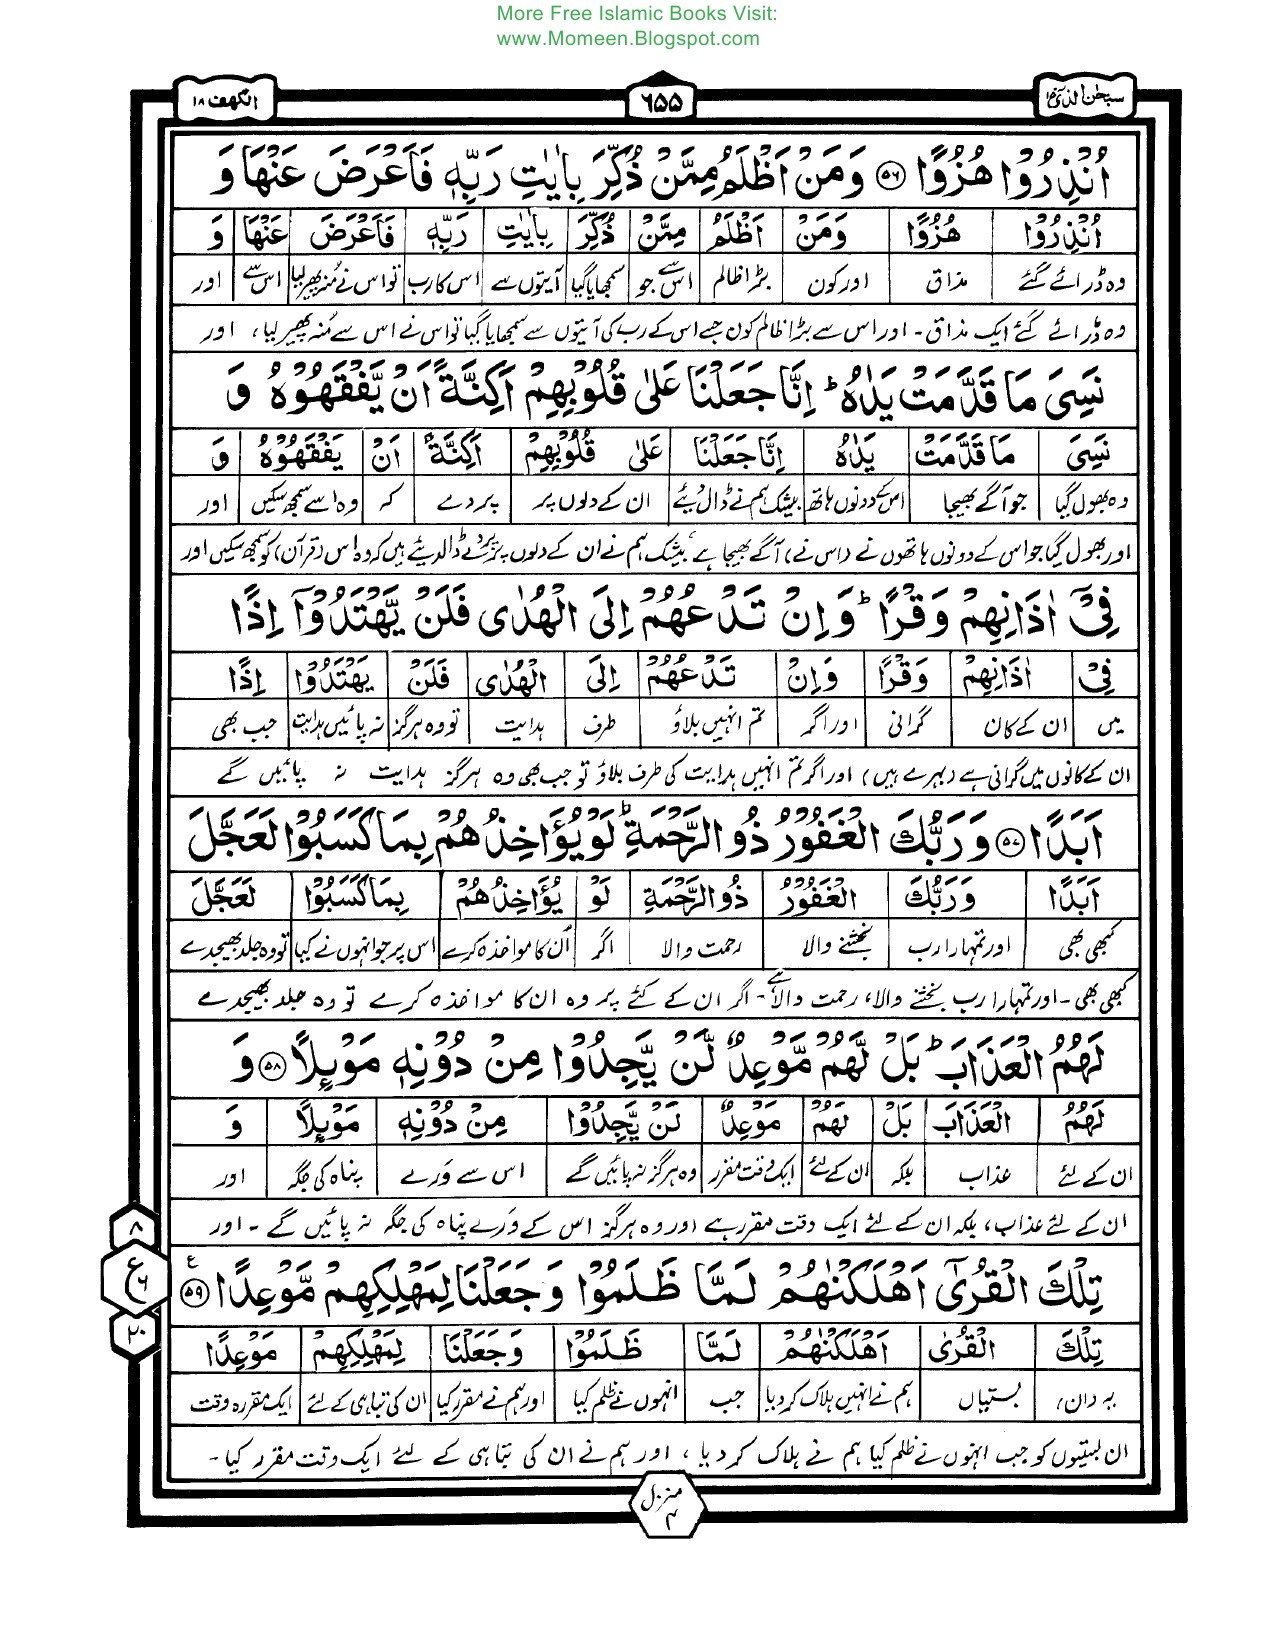 More Free Islamic Books Visit:
www.Momeen.Blogspot.com
سبحٰن الذی ۱۵
۶۵۵
الکھف ۱۸
اُنْذِرُوْا هُزُوًا ۵۶ وَمَنْ اَظْلَمُ مِمَّنْ ذُكِّرَ بِاٰيٰتِ رَبِّهٖ فَاَعْرَضَ عَنْهَا وَ
اُنْذِرُوْا هُزُوًا وَمَنْ اَظْلَمُ مِمَّنْ ذُكِّرَ بِاٰيٰتِ رَبِّهٖ فَاَعْرَضَ عَنْهَا وَ
وہ ڈرائے گئے مذاق اور کون بڑا ظالم اس سے جو سمجھایا گیا آیتوں سے اس کا رب تو اس نے منہ پھیر لیا اس سے اور
وہ ڈرائے گئے ایک مذاق۔ اور اس سے بڑا ظالم کون جسے اس کے رب کی آیتوں سے سمجھایا گیا تو اس نے اس سے مُنہ پھیر لیا، اور
نَسِيَ مَا قَدَّمَتْ يَدٰهُ ؕ اِنَّا جَعَلْنَا عَلٰى قُلُوْبِهِمْ اَكِنَّةً اَنْ يَّفْقَهُوْهُ وَ
نَسِيَ مَا قَدَّمَتْ يَدٰهُ اِنَّا جَعَلْنَا عَلٰى قُلُوْبِهِمْ اَكِنَّةً اَنْ يَفْقَهُوْهُ وَ
وہ بھول گیا جو آگے بھیجا اس کے دونوں ہاتھ بیشک ہم نے ڈال دیئے ان کے دلوں پر پردے کہ وہ اسے سمجھ سکیں اور
اور بھول گیا جو اس کے دونوں ہاتھوں نے (اس نے) آگے بھیجا ہے، بیشک ہم نے ان کے دلوں پر پردے ڈال دیئے ہیں کہ وہ اس (قرآن) کو سمجھ سکیں اور
فِيْٓ اٰذَانِهِمْ وَقْرًا ؕ وَاِنْ تَدْعُهُمْ اِلَى الْهُدٰى فَلَنْ يَّهْتَدُوْٓا اِذًا
فِيْٓ اٰذَانِهِمْ وَقْرًا وَاِنْ تَدْعُهُمْ اِلَى الْهُدٰى فَلَنْ يَهْتَدُوْٓا اِذًا
میں ان کے کان گرانی اور اگر تم انہیں بلاؤ طرف ہدایت تو وہ ہرگز نہ پائیں ہدایت جب بھی
ان کے کانوں میں گرانی ہے (بہرے ہیں) اور اگر تم انہیں ہدایت کی طرف بلاؤ تو جب بھی وہ ہرگز ہدایت نہ پائیں گے
اَبَدًا ۵۷ وَرَبُّكَ الْغَفُوْرُ ذُو الرَّحْمَةِ ؕ لَوْ يُؤَاخِذُهُمْ بِمَا كَسَبُوْا لَعَجَّلَ
اَبَدًا وَرَبُّكَ الْغَفُوْرُ ذُو الرَّحْمَةِ لَوْ يُؤَاخِذُهُمْ بِمَا كَسَبُوْا لَعَجَّلَ
کبھی بھی اور تمہارا رب بخشنے والا رحمت والا اگر اُن کا مواخذہ کرے اس پر جو انہوں نے کیا تو وہ جلد بھیجدے
کبھی بھی۔ اور تمہارا رب بخشنے والا، رحمت والا ہے۔ اگر ان کے کئے پر وہ ان کا مواخذہ کرے تو وہ جلد بھیجدے
لَهُمُ الْعَذَابَ ؕ بَلْ لَّهُمْ مَّوْعِدٌ لَّنْ يَّجِدُوْا مِنْ دُوْنِهٖ مَوْئِلًا ۵۸ وَ
لَهُمُ الْعَذَابَ بَلْ لَهُمْ مَوْعِدٌ لَنْ يَّجِدُوْا مِنْ دُوْنِهٖ مَوْئِلًا وَ
ان کے لئے عذاب بلکہ ان کے لئے ایک وقت مقرر وہ ہرگز نہ پائیں گے اس سے وَرے پناہ کی جگہ اور
ان کے لئے عذاب، بلکہ ان کے لئے ایک وقت مقرر ہے اور وہ ہرگز اس کے وَرے پناہ کی جگہ نہ پائیں گے۔ اور
تِلْكَ الْقُرٰٓى اَهْلَكْنٰهُمْ لَمَّا ظَلَمُوْا وَجَعَلْنَا لِمَهْلِكِهِمْ مَّوْعِدًا ۵۹ ع
۸
ع ۶
۲۰
تِلْكَ الْقُرٰى اَهْلَكْنٰهُمْ لَمَّا ظَلَمُوْا وَجَعَلْنَا لِمَهْلِكِهِمْ مَوْعِدًا
یہ (ان) بستیاں ہم نے انہیں ہلاک کر دیا جب انہوں نے ظلم کیا اور ہم نے مقرر کیا ان کی تباہی کے لئے ایک مقررہ وقت
ان بستیوں کو جب انہوں نے ظلم کیا ہم نے ہلاک کر دیا، اور ہم نے ان کی تباہی کے لئے ایک وقت مقرر کیا۔
منزل
۴